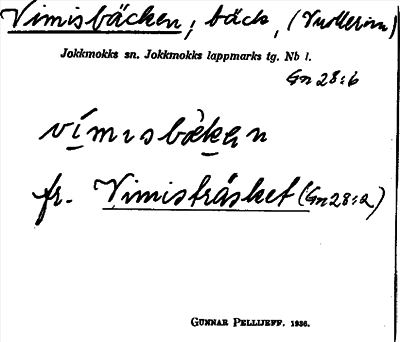 Vimisbäcken, bäck, (Vuollerim)
Jokkmokks sn. Jokkmokks lappmarks tg. Nb l.
Gn 28:b
vímisbäkɛn
fr. Vimisträsket (Gn 28:a)
GUNNAR PELLIJEFF. 1936.